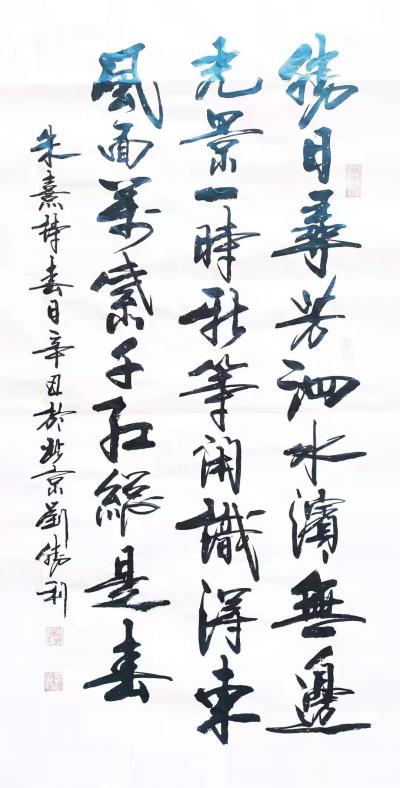 勝日尋芳泗水濱無邊
光景一時新等閑識得東
風面萬紫千紅總是春
朱熹詩春日辛丑於北京劉勝利